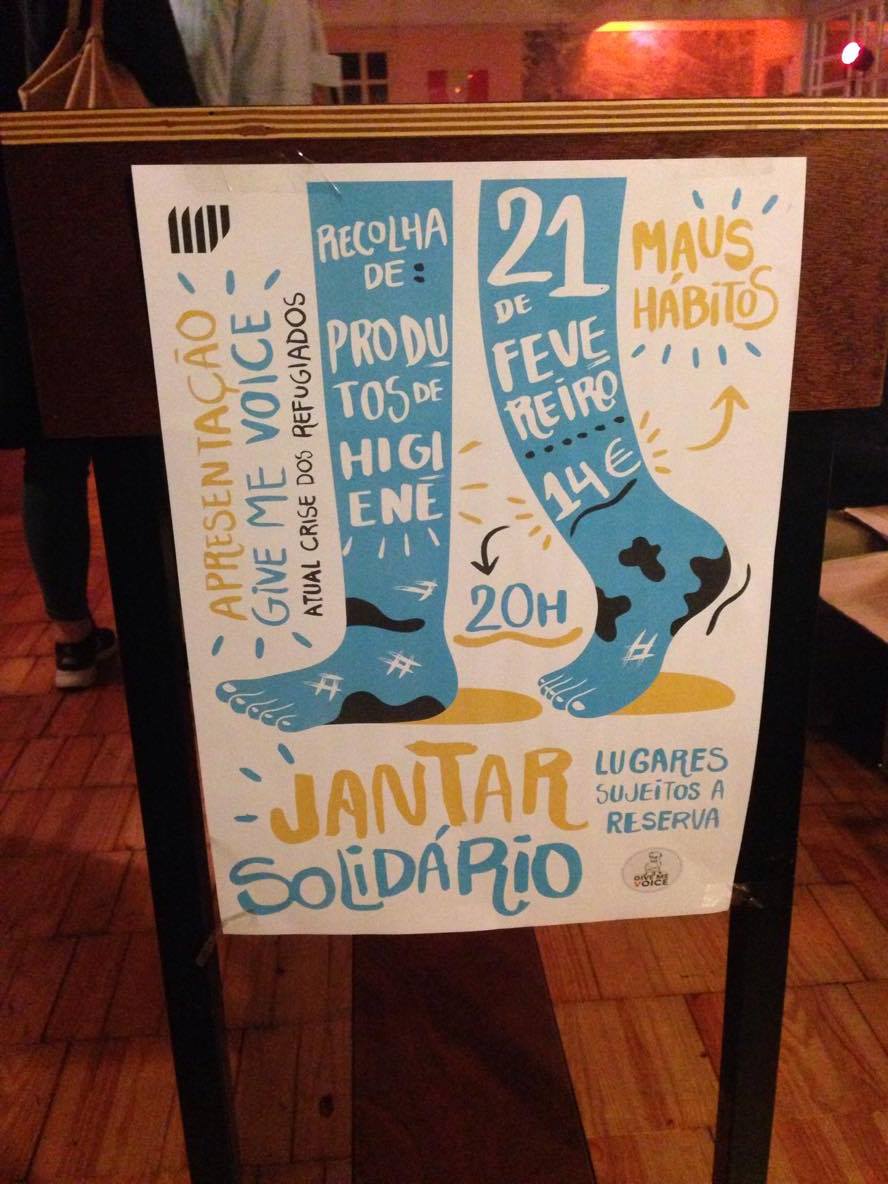 APRESENTAÇÃO
GIVE ME VOICE
ATUAL CRISE DOS REFUGIADOS
RECOLHA
DE:
PRODU
TOS DE
HIGI
ENE
21
DE
FEVE
REIRO
14€
MAUS
HÁBITOS
20H
JANTAR
SOLIDÁRIO
LUGARES
SUJEITOS A
RESERVA
GIVE ME
VOICE